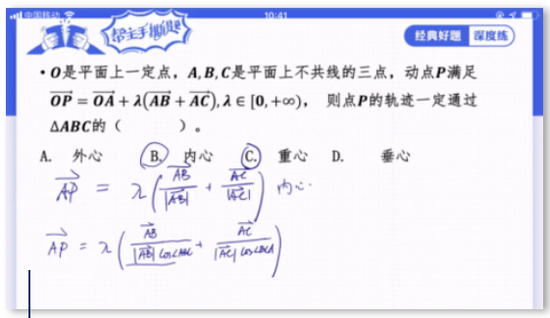 中国移动 10:41
帮主手撕难题
经典好题 深度练
• O是平面上一定点，A,B,C是平面上不共线的三点，动点P满足
\overrightarrow{OP} = \overrightarrow{OA} + λ(\overrightarrow{AB} + \overrightarrow{AC}), λ ∈ [0, +∞)， 则点P的轨迹一定通过
ΔABC的（ ）。
A. 外心 B. 内心 C. 重心 D. 垂心
\overrightarrow{AP} = λ(\frac{\overrightarrow{AB}}{|\overrightarrow{AB}|} + \frac{\overrightarrow{AC}}{|\overrightarrow{AC}|}) 内心.
\overrightarrow{AP} = λ(\frac{\overrightarrow{AB}}{|\overrightarrow{AB}| cos∠ABC} + \frac{\overrightarrow{AC}}{|\overrightarrow{AC}| cos∠BCA})